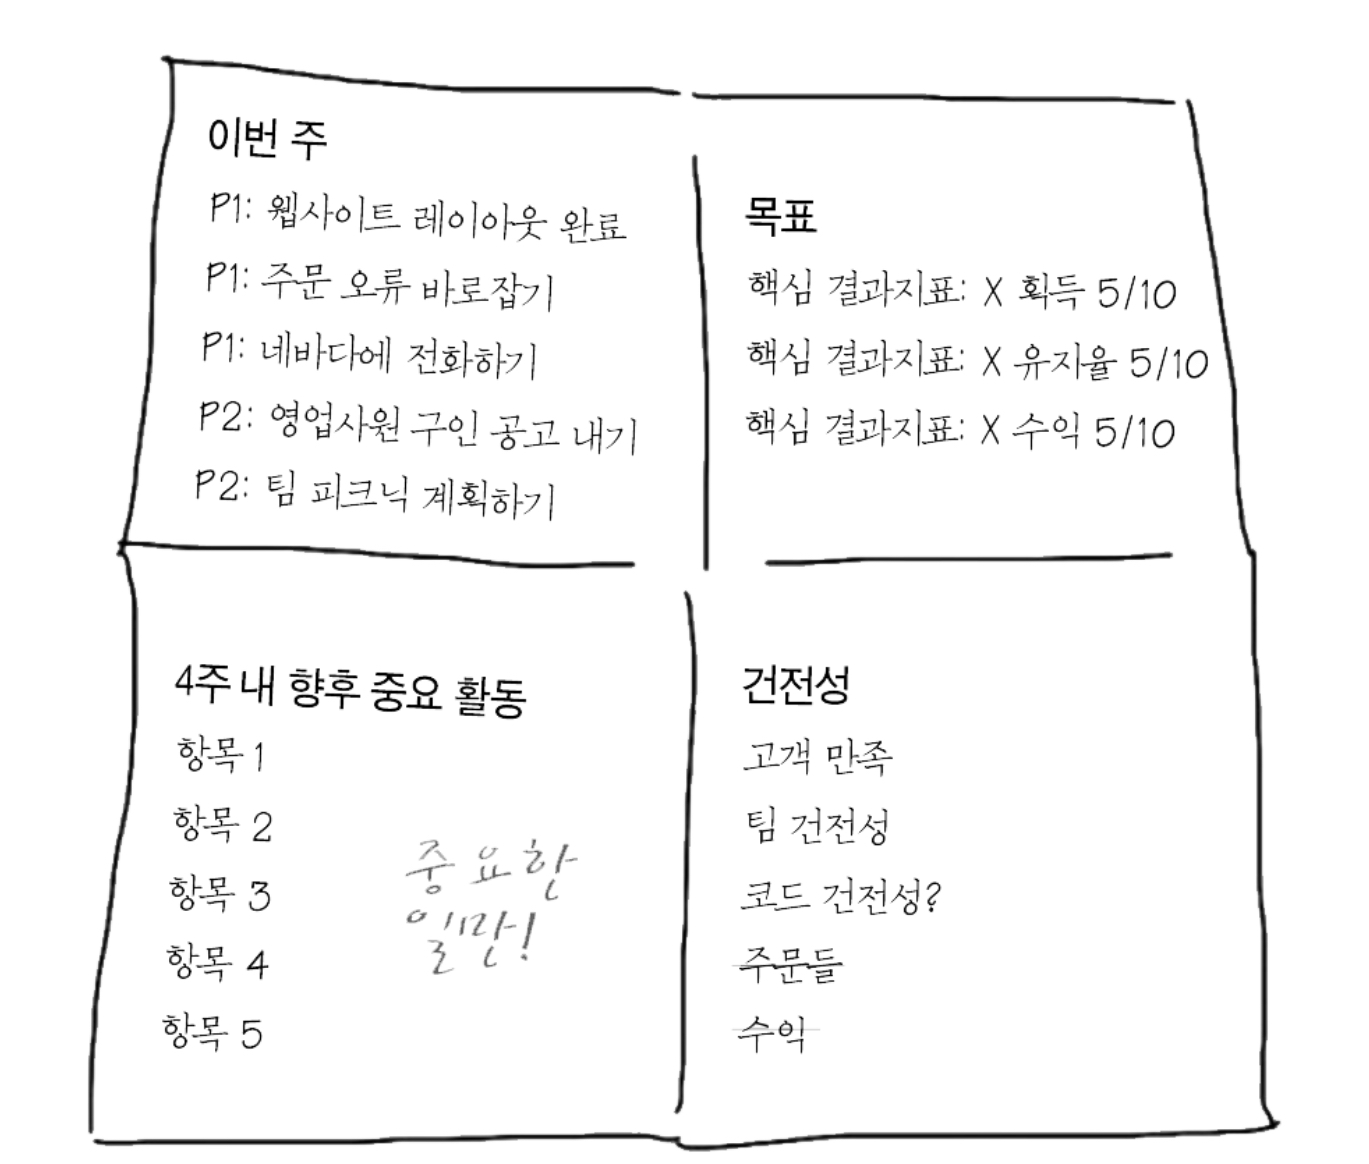 이번 주
P1: 웹사이트 레이아웃 완료
P1: 주문 오류 바로잡기
P1: 네바다에 전화하기
P2: 영업사원 구인 공고 내기
P2: 팀 피크닉 계획하기
목표
핵심 결과지표: X 획득 5/10
핵심 결과지표: X 유지율 5/10
핵심 결과지표: X 수익 5/10
4주 내 향후 중요 활동
항목 1
항목 2
항목 3
항목 4
항목 5
중요한
일만!
건전성
고객 만족
팀 건전성
코드 건전성?
주문들
수익